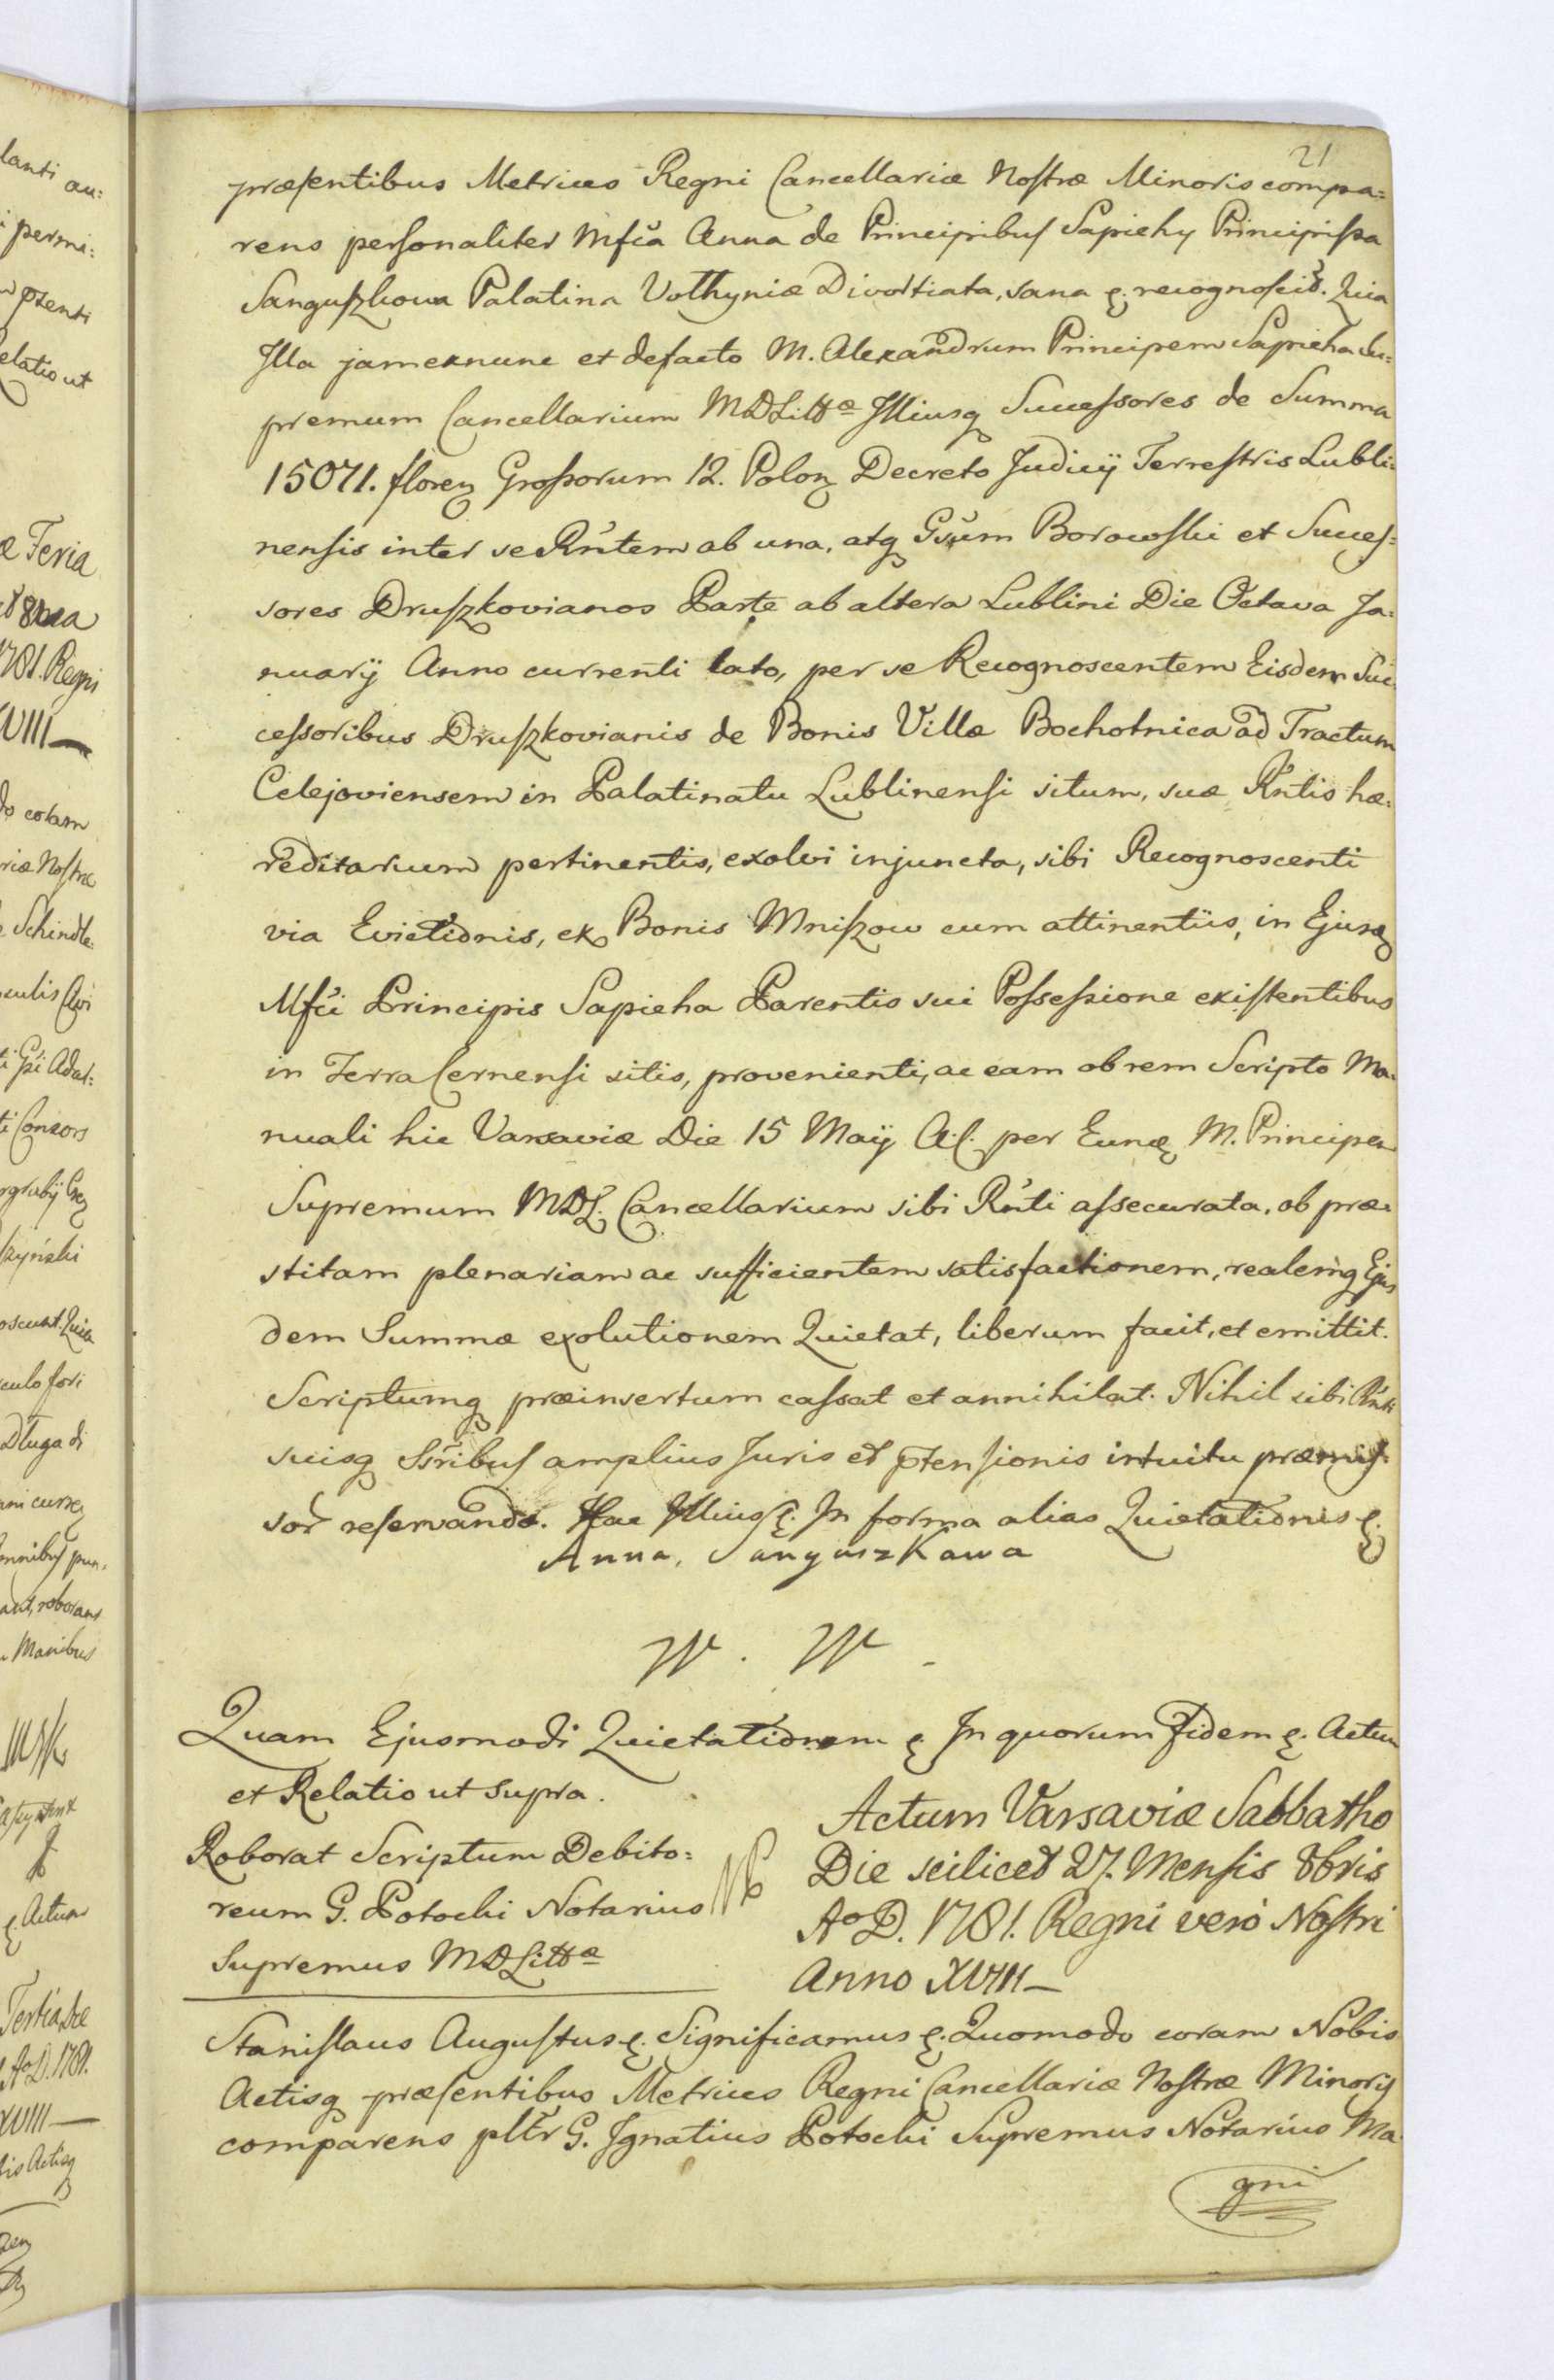 21
præsentibus Metrices Regni Cancellariæ Nostræ Minoris compa=
rens personaliter Mfca Anna de Principibus Sapiehy Principissa
Sanguszkowa Palatina Volhyniæ Divortiata, sana &. recognoscit. Quia
Illa jamexnunc et defacto M. Alexandrum Principem Sapieha Su=
premum Cancellarium MDLittæ Illiusq Successores de Summa
15071. floren Grossorum 12. Polon Decreto Judicij Terrestris Lubli=
nensis inter se Rntem ab una, atq Gsum Borowski et Succes=
sores Druszkovianos Parte ab altera Lublini Die Octava Ja=
nuarij Anno currenti lato, per se Recognoscentem Eisdem Suc=
cessoribus Druszkovianis de Bonis Villa Bochotnica ad Tractum
Celejoviensem in Palatinatu Lublinensi situm, suæ Rntis hæ=
reditarium pertinentis, exolvi injuncta, sibi Recognoscenti
via Evictionis, ex Bonis Mniszow cum attinentiis, in Ejusq
Mfci Principis Sapieha Parentis sui Possessione existentibus
in Terra Cernensi sitis, provenienti, ac eam ob rem Scripto Ma=
nuali hic Varsaviæ Die 15 Maij A.C. per Eunq M. Principem
Supremum MDL. Cancellarium sibi Rnti assecurata, ob præ=
stitam plenariam ac sufficientem satisfactionem, realemq Ejus
dem Summæ exolutionem Quietat, liberum facit, et emittit.
Scriptumq præinsertum cassat et annihilat. Nihil sibi Rnti
suisq Ssribus amplius Juris et ptensionis intuitu præmis=
sor reservando. Hac Illius &. In forma alias Quietationis &.
Anna, Sanguszkowa
W. W.
Quam Ejusmodi Quietationem &. In quorum fidem &. Actum
et Relatio ut supra.
Roborat Scriptum Debito=
reum G. Potocki Notarius
Supremus MDLittæ
Actum Varsaviæ Sabbatho
Die scilicet 27. Mensis 8bris
AoD. 1781. Regni vero Nostri
Anno XVIII—
Stanislaus Augustus &. Significamus &. Quomodo coram Nobis
Actisq præsentibus Metrices Regni Cancellariæ Nostræ Minoris
comparens pltr G. Ignatius Potocki Supremus Notarius Ma
gni